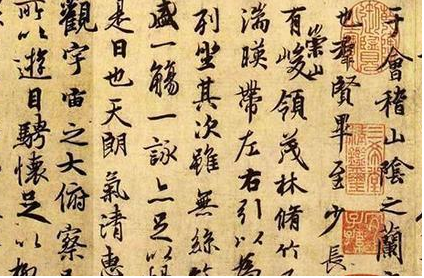 于會稽山陰之蘭
也羣賢畢至少長
有崇山峻領茂林脩竹
湍暎帶左右引以爲
列坐其次雖無絲竹
盛一觴一詠亦足以暢
是日也天朗氣清惠
觀宇宙之大俯察
所以遊目騁懷足以